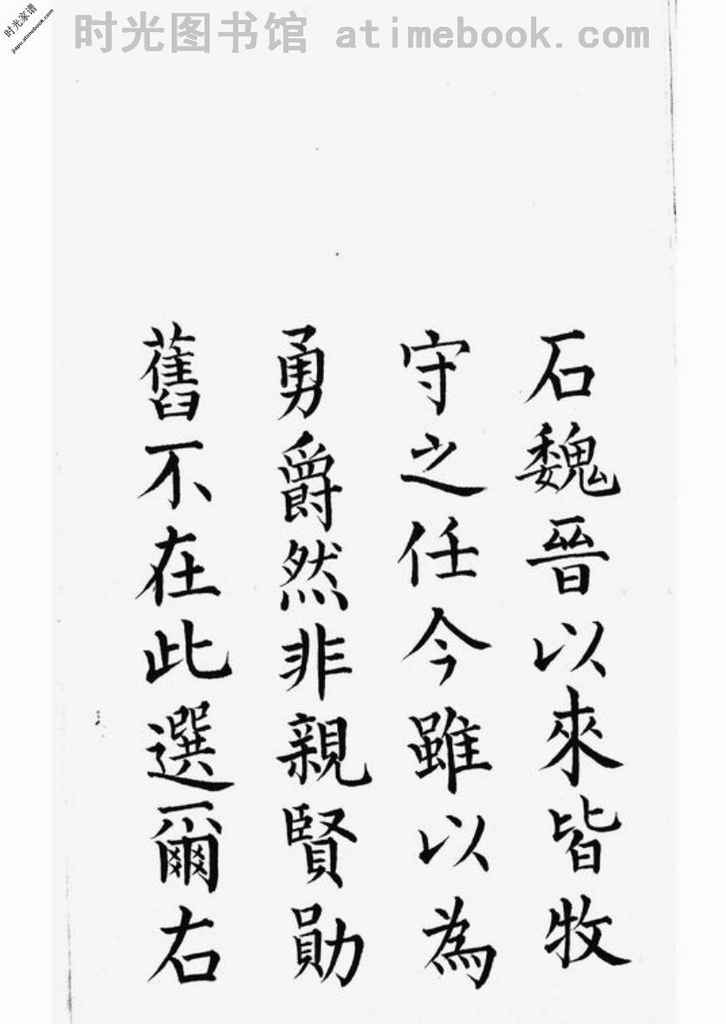 时光图书馆 atimebook.com
时光家谱
jiapu.atimebook.com
石魏晉以來皆牧
守之任今雖以為
勇爵然非親賢勛
舊不在此選爾右